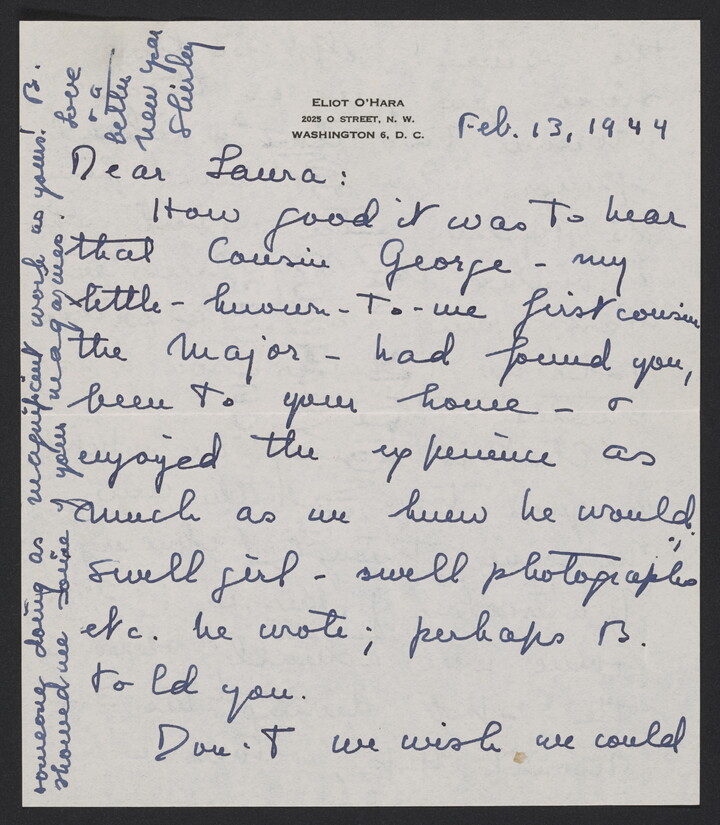 ELIOT O'HARA
2025 O STREET, N. W.
WASHINGTON 6, D. C.
Feb. 13, 1944
Dear Laura:
How good it was to hear
that Cousin George - my
little-known-to-me first cousin
the Major - had found you,
been to your home - &
enjoyed the experience as
much as we knew he would;
"swell girl - swell photographs
etc. he wrote; perhaps B.
told you.
Don't we wish we could
someone doing as magnificent work as yours! B.
showed me some of your magazines.
Love
& a
better
New Year
Shirley